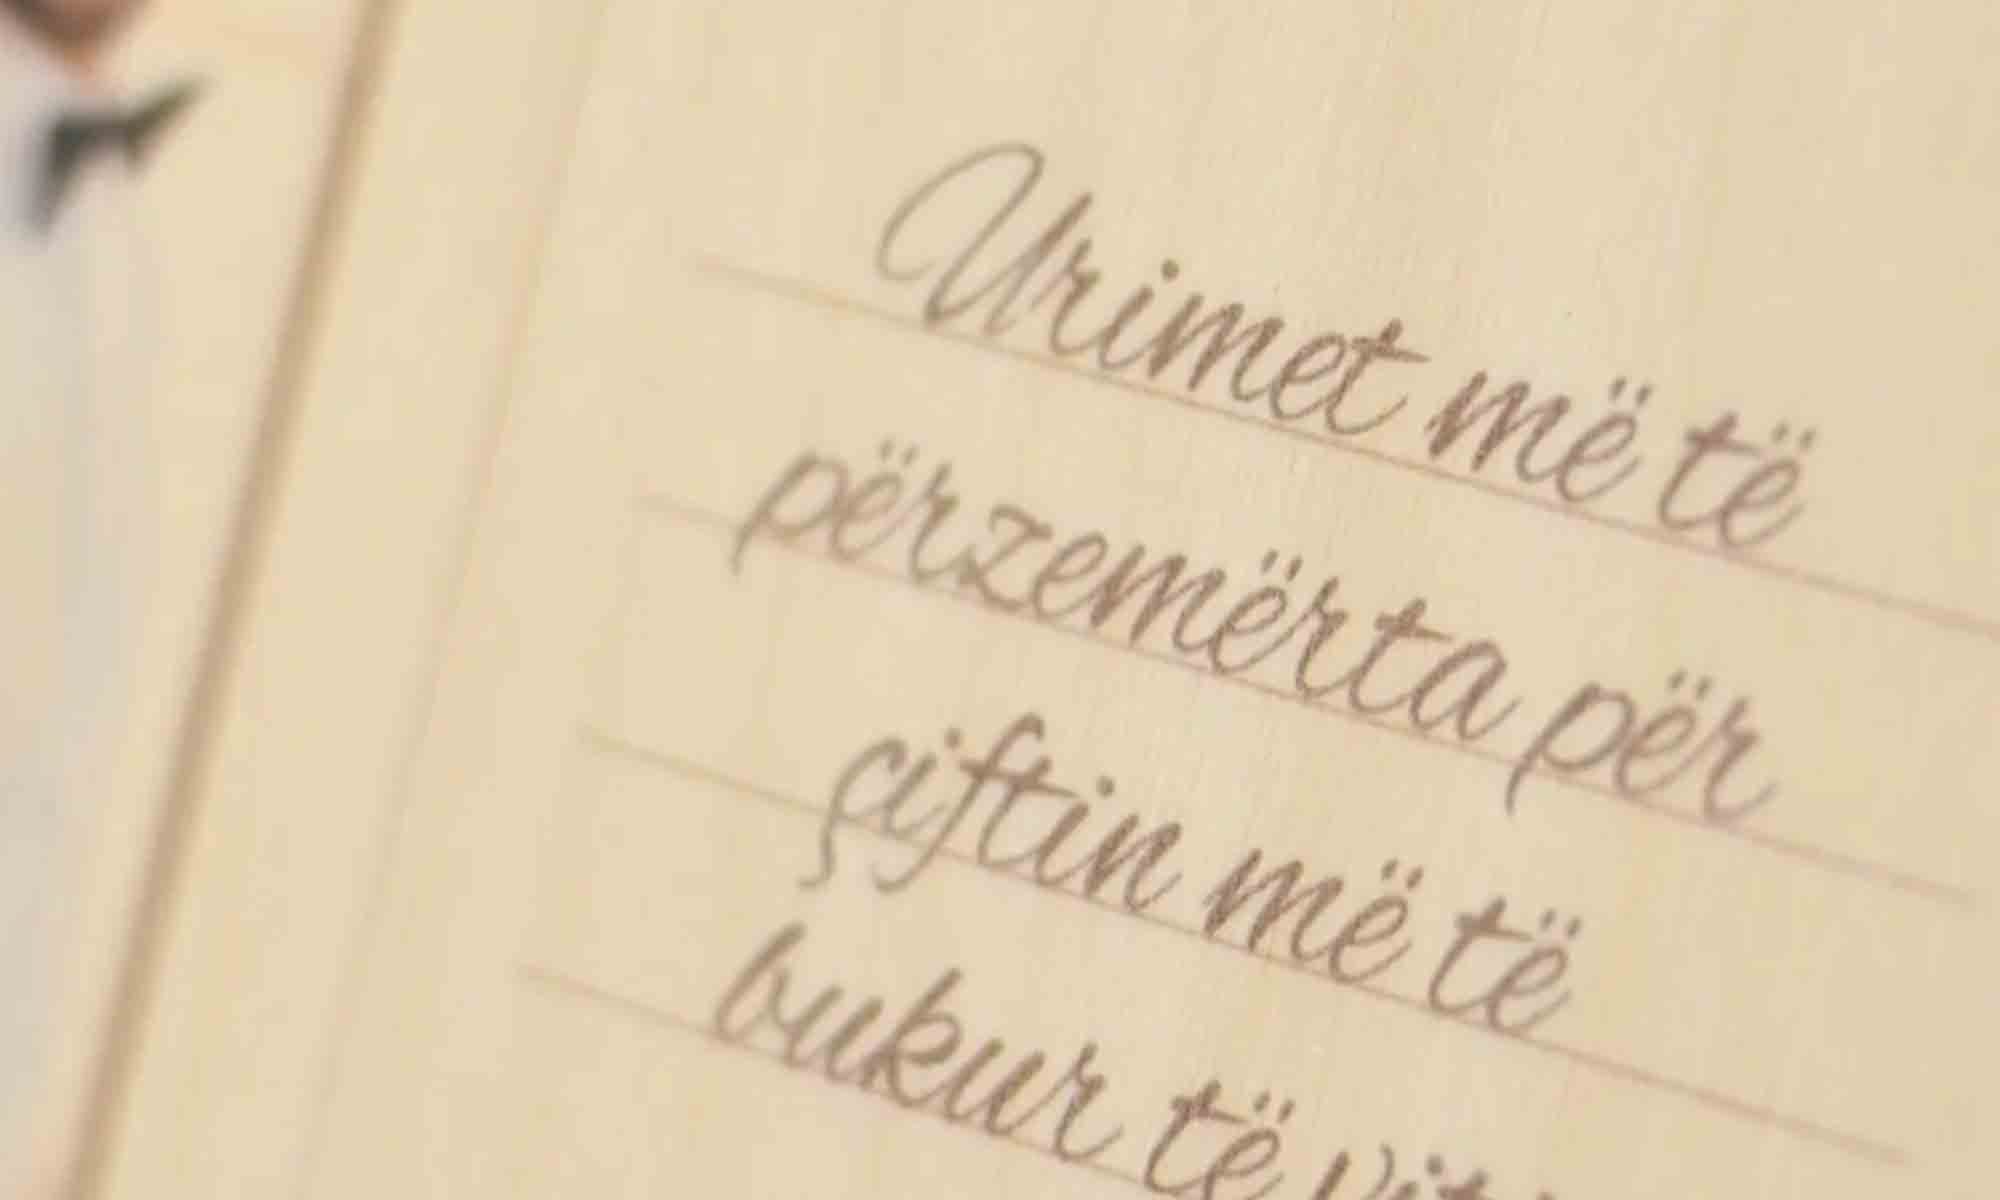 Urimet më të
përzemërta për
çiftin më të
bukur të